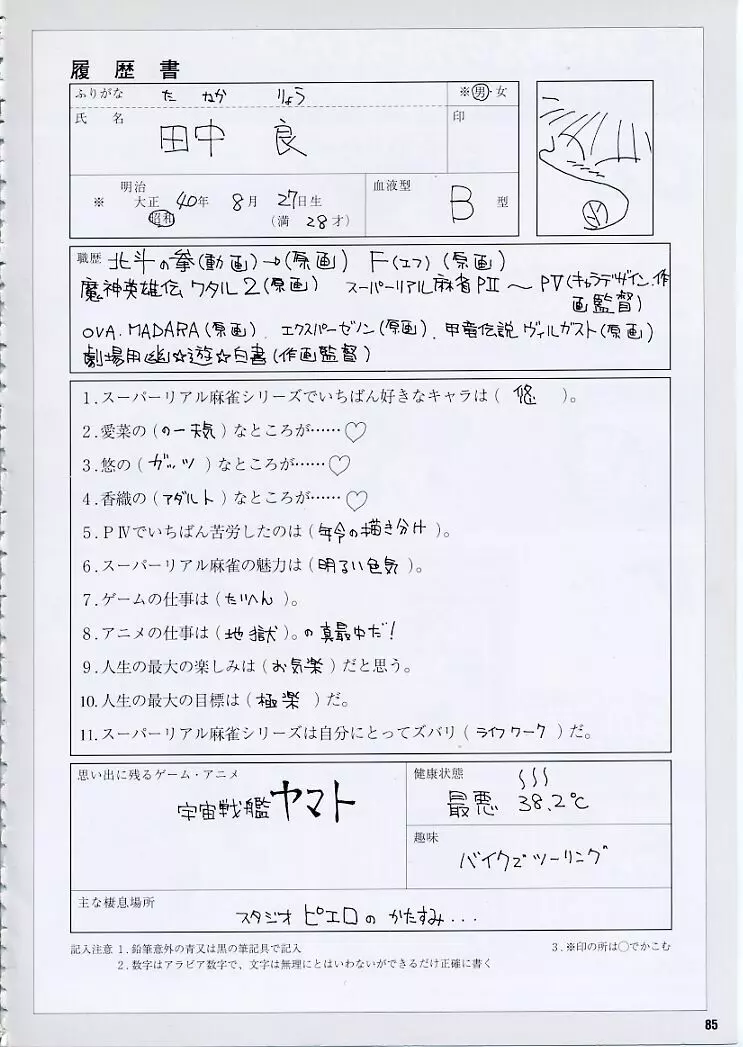 履歴書
ふりがな たなか りょう ※男・女
氏名 田中 良 印
※ 明治 大正 昭和 40年 8月 27日生 (満 28才) 血液型 B 型
職歴 北斗の拳(動画)→(原画) F(エフ)(原画)
魔神英雄伝 ワタル2(原画) スーパーリアル麻雀PII～PV(キャラデザイン.作画監督)
OVA.MADARA(原画). エクスパーゼノン(原画). 甲竜伝説ヴィルガスト(原画)
劇場用幽☆遊☆白書(作画監督)
1.スーパーリアル麻雀シリーズでいちばん好きなキャラは( 悠 )。
2.愛菜の(のー天気)なところが……♡
3.悠の(ガッツ)なところが……♡
4.香織の(アダルト)なところが……♡
5.PⅣでいちばん苦労したのは(年令の描き分け)。
6.スーパーリアル麻雀の魅力は(明るい色気)。
7.ゲームの仕事は(たいへん)。
8.アニメの仕事は(地獄)。の真最中だ!
9.人生の最大の楽しみは(お気楽)だと思う。
10.人生の最大の目標は(極楽)だ。
11.スーパーリアル麻雀シリーズは自分にとってズバリ(ライフワーク)だ。
思い出に残るゲーム・アニメ
宇宙戦艦ヤマト
健康状態
最悪 38.2℃
趣味
バイクでツーリング
主な棲息場所
スタジオピエロのかたすみ...
記入注意 1.鉛筆意外の青又は黒の筆記具で記入 3.※印の所は○でかこむ
2.数字はアラビア数字で、文字は無理にとはいわないができるだけ正確に書く
85